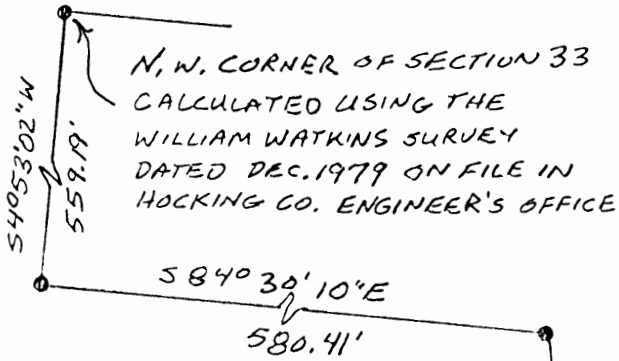 N.W. CORNER OF SECTION 33
CALCULATED USING THE
WILLIAM WATKINS SURVEY
DATED DEC. 1979 ON FILE IN
HOCKING CO. ENGINEER'S OFFICE
S4°53'02"W
559.19'
S84°30'10"E
580.41'